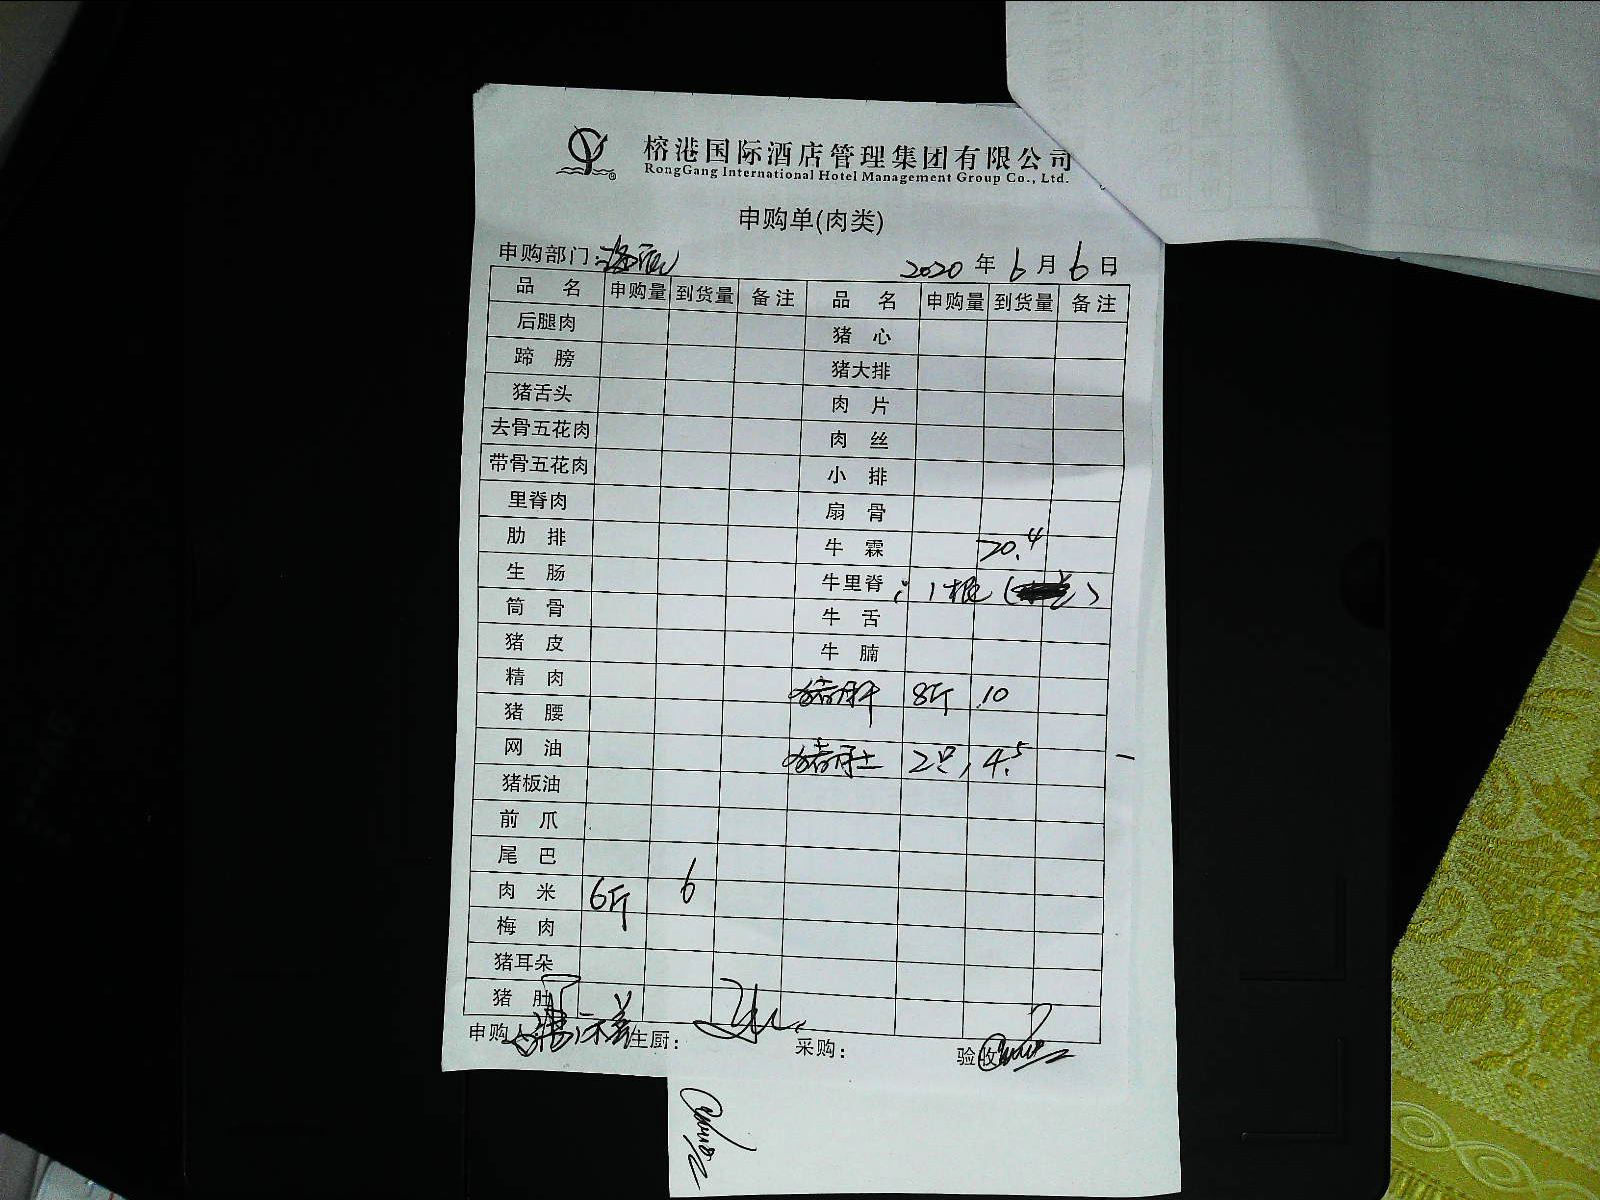 榕港国际酒店管理集团有限公司
RongGang International Hotel Management Group Co., Ltd.
申购单(肉类)
申购部门: 2020 年 6 月 6 日
品 名 申购量 到货量 备注 品 名 申购量 到货量 备注
后腿肉 猪 心
蹄 膀 猪大排
猪舌头 肉 片
去骨五花肉 肉 丝
带骨五花肉 小 排
里脊肉 扇 骨
肋 排 牛 霖 20.4
生 肠 牛里脊 : 1根
筒 骨 牛 舌
猪 皮 牛 腩
精 肉 猪肝 8斤 10
猪 腰
网 油 猪肚 2只, 4.5
猪板油
前 爪
尾 巴
肉 米 6斤 6
梅 肉
猪耳朵
猪 肚
申购人 主厨: 采购: 验收